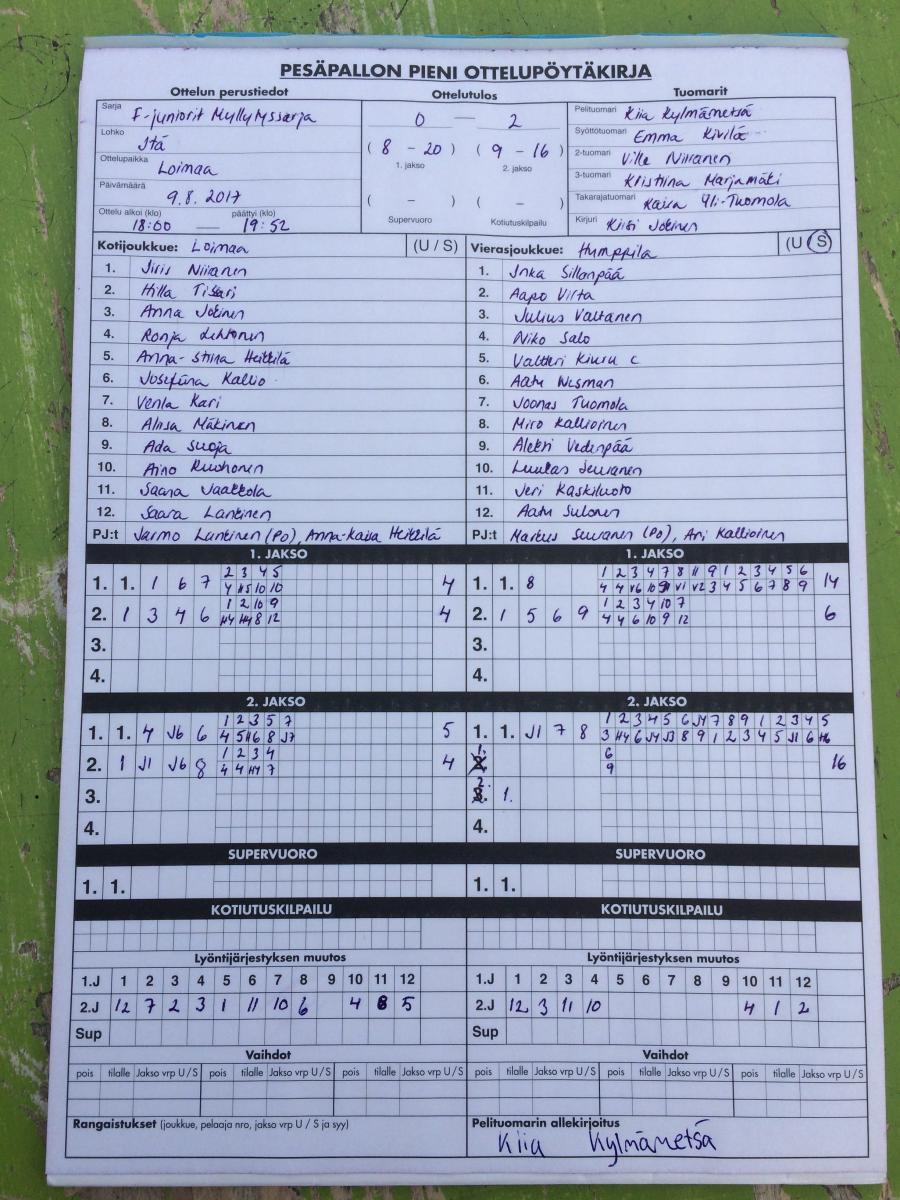 PESÄPALLON PIENI OTTELUPÖYTÄKIRJA
Ottelun perustiedot Ottelutulos Tuomarit
Sarja F-juniorit Myllytyssarja
Lohko Itä
Ottelupaikka Loimaa
Päivämäärä 9.8.2017
Ottelu alkoi (klo) päättyi (klo)
18:00 — 19:52
0 — 2
( 8 - 20 ) ( 9 - 16 )
1. jakso 2. jakso
( - ) ( - )
Supervuoro Kotiutuskilpailu
Pelituomari Kiia Kylmämetsä
Syöttötuomari Emma Kivilä
2-tuomari Ville Niiranen
3-tuomari Kristiina Marjamäki
Takarajatuomari Kaisa Yli-Tuomola
Kirjuri Kirsi Jokinen
Kotijoukkue: Loimaa (U / S) Vierasjoukkue: Humppila (U / S)
1. Iiris Niiranen 1. Inka Sillanpää
2. Hilla Tissari 2. Aapo Virta
3. Anna Jokinen 3. Julius Valtanen
4. Ronja Lehtonen 4. Niko Salo
5. Anna-Stiina Heikkilä 5. Valtteri Kiuru C
6. Josefiina Kallio 6. Aatu Nisman
7. Venla Kari 7. Joonas Tuomola
8. Aliisa Mäkinen 8. Miro Kallioinen
9. Ada Suoja 9. Aleksi Vedenpää
10. Aino Ruohonen 10. Luukas Seuranen
11. Saana Jaakkola 11. Jeri Kaskiluoto
12. Saara Lantinen 12. Aatu Sulonen
PJ:t Jarmo Lantinen (PO), Anna-Kaisa Heikkilä PJ:t Markus Seuranen (PO), Ari Kallioinen
1. JAKSO 1. JAKSO
2 3 4 5 1 2 3 4 7 8 11 9 1 2 3 4 5 6
1. 1. 1 6 7 4 1. 1. 8 14
1 2 10 9 1 2 3 4 10 7
2. 1 3 4 6 4 2. 1 5 6 9 4 4 6 10 9 12 6
3. 3.
4. 4.
2. JAKSO 2. JAKSO
1 2 3 5 7
1. 1. 4 J6 6 5 1. 1. J1 7 8
1 2 3 4 1. 6
2. 1 J1 J6 8 4 9 16
3. 2. 1.
4. 4.
SUPERVUORO SUPERVUORO
1. 1. 1. 1.
KOTIUTUSKILPAILU KOTIUTUSKILPAILU
Lyöntijärjestyksen muutos Lyöntijärjestyksen muutos
1.J 1 2 3 4 5 6 7 8 9 10 11 12 1.J 1 2 3 4 5 6 7 8 9 10 11 12
2.J 12 7 2 3 1 11 10 6 4 8 5 2.J 12 3 11 10 4 1 2
Sup Sup
Vaihdot Vaihdot
pois tilalle Jakso vrp U / S pois tilalle Jakso vrp U / S pois tilalle Jakso vrp U / S pois tilalle Jakso vrp U / S pois tilalle Jakso vrp U / S pois tilalle Jakso vrp U / S
Rangaistukset (joukkue, pelaaja nro, jakso vrp U / S ja syy) Pelituomarin allekirjoitus
Kiia Kylmämetsä